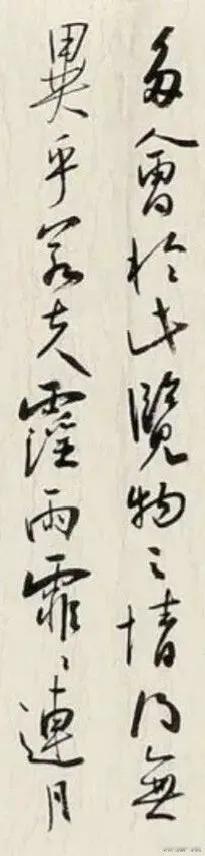 多會於此覽物之情得無
異乎若夫霪雨霏々連月